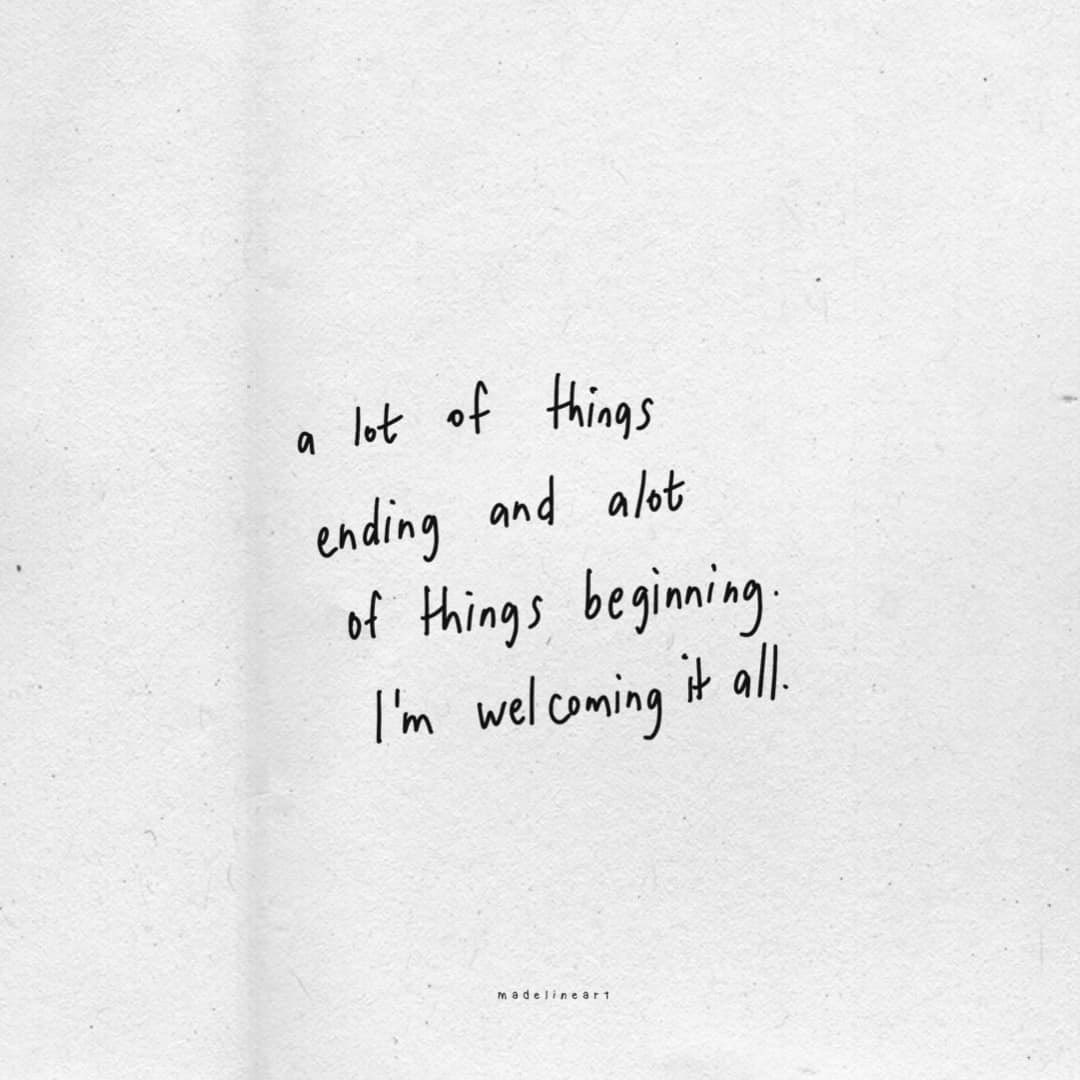 a lot of things
ending and alot
of things beginning.
I'm welcoming it all.
madelineart